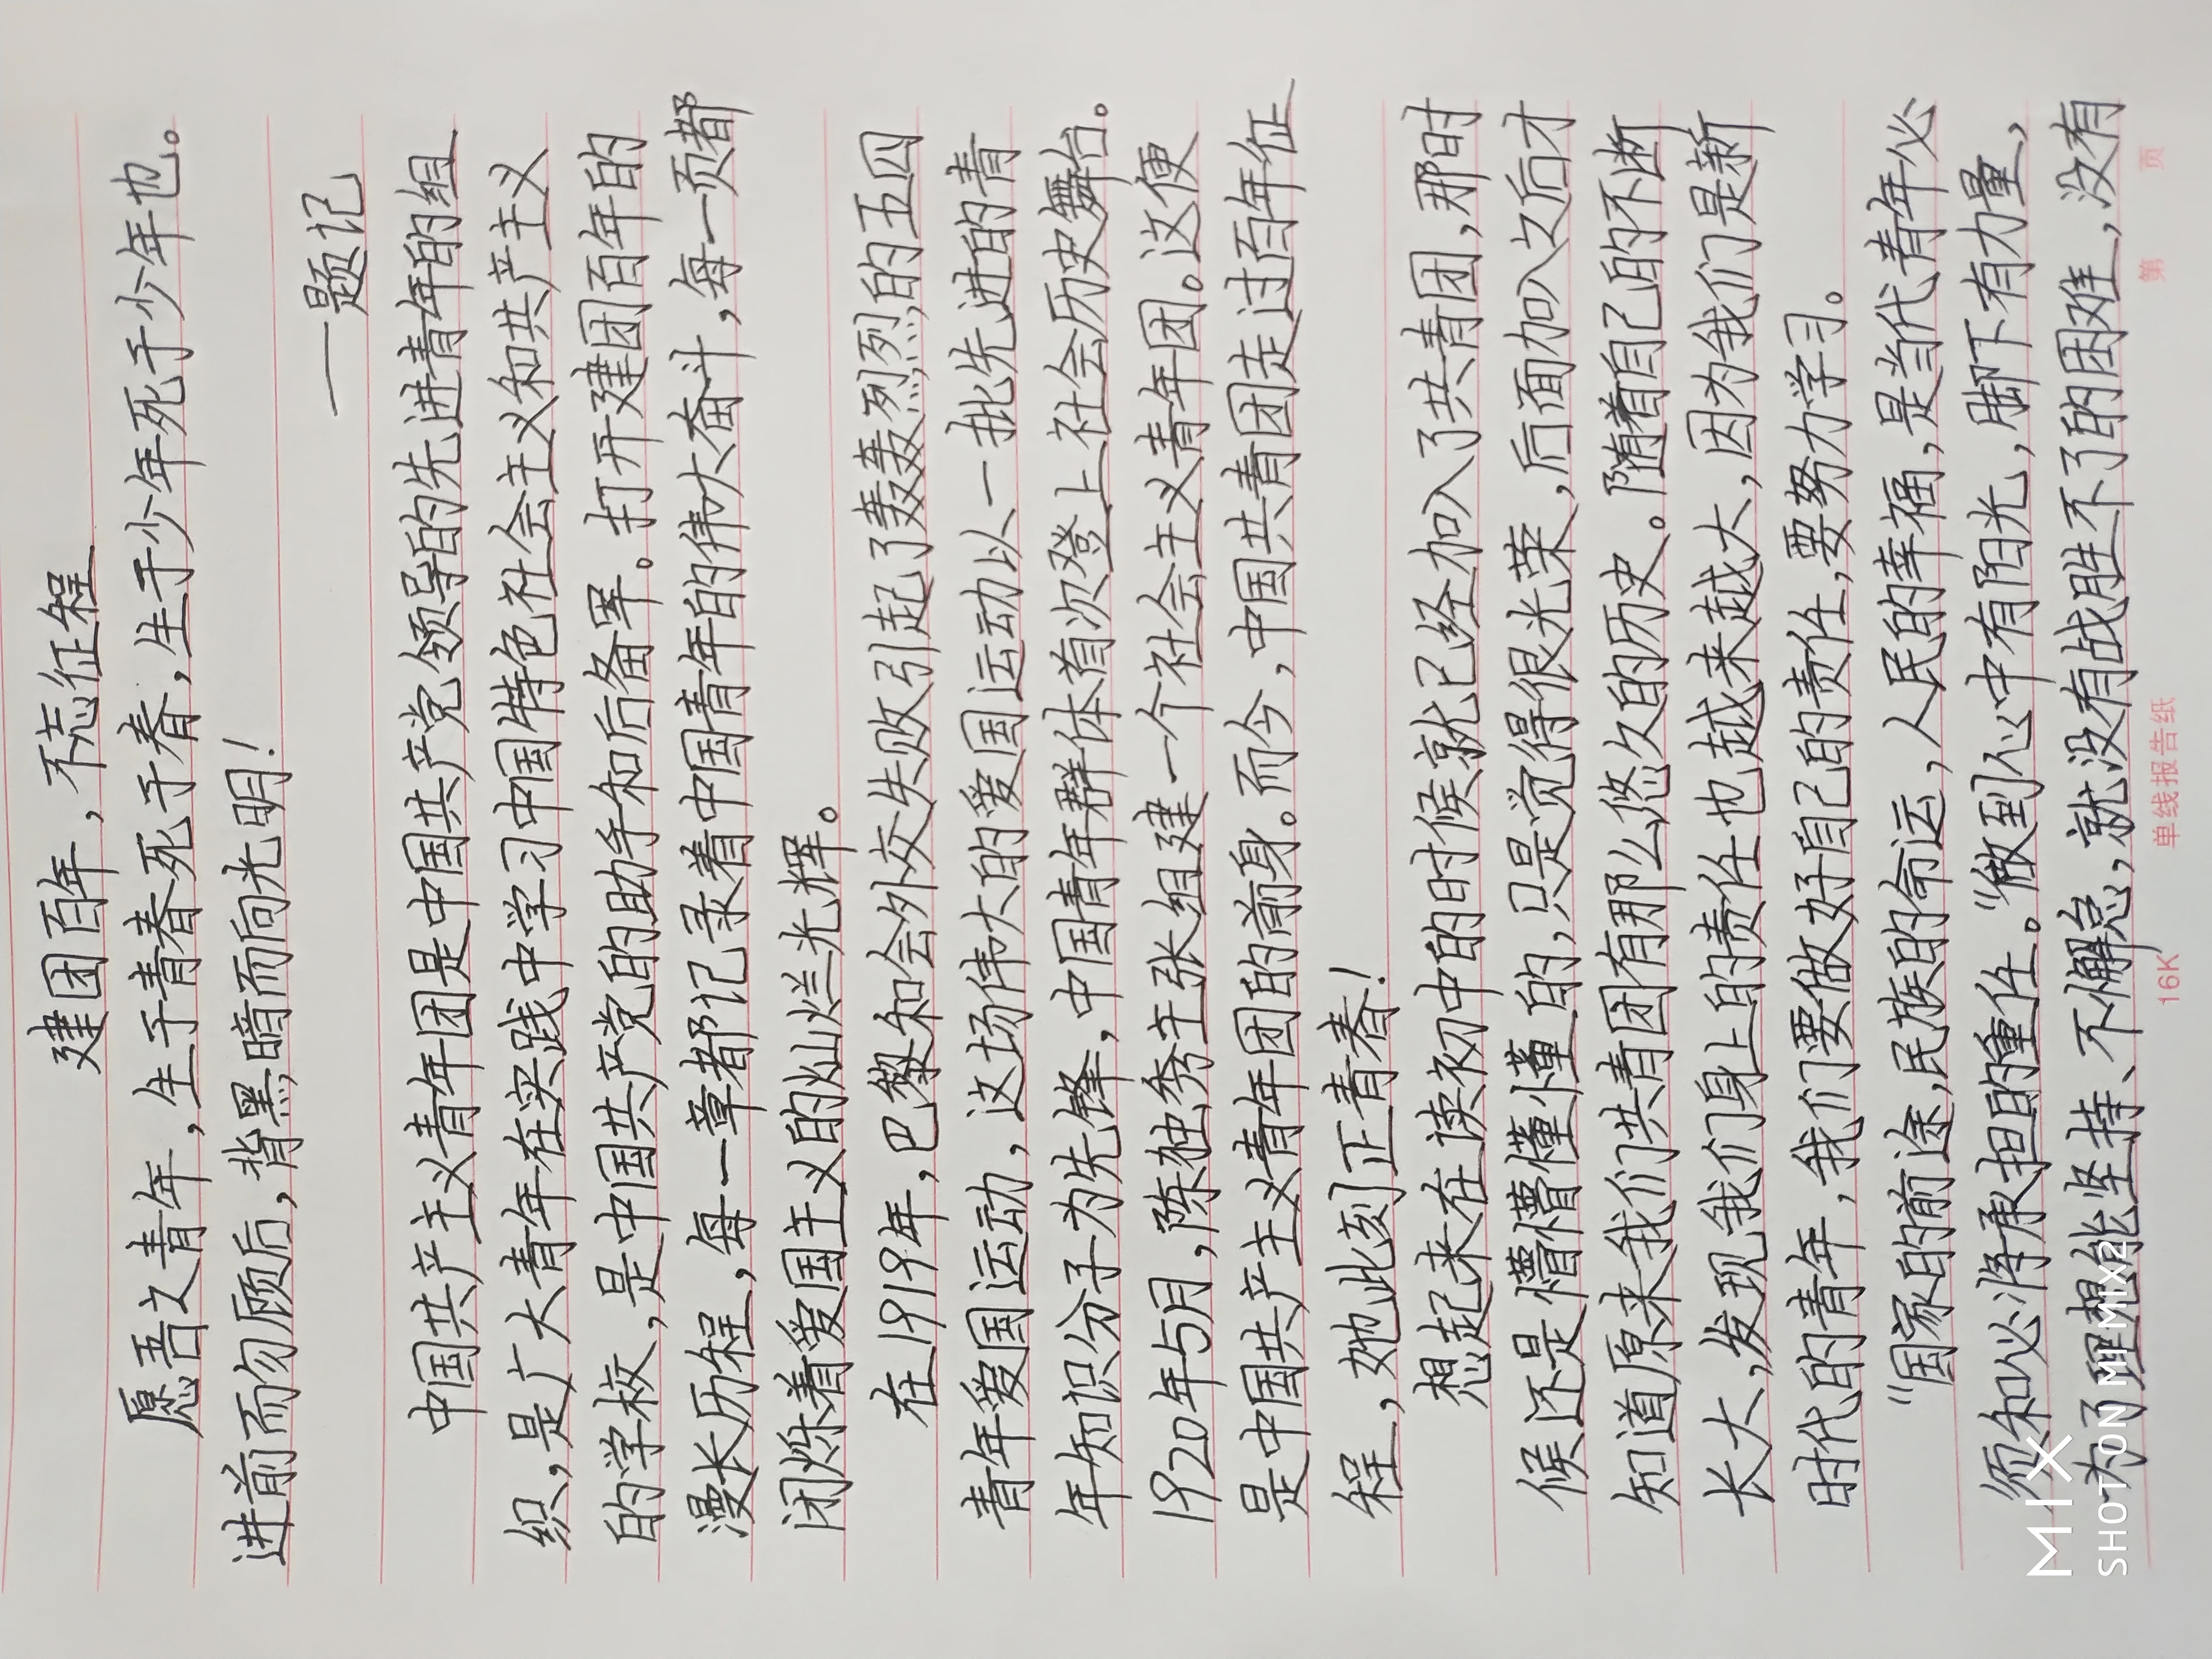 建团百年，不忘征程
愿吾文青年，生于青春死于春，生于少年死于少年也。
进前而勿顾后，背黑暗而向光明！
——题记
中国共产主义青年团是中国共产党领导的先进青年的组
织，是广大青年在实践中学习中国特色社会主义和共产主义
的学校，是中国共产党的助手和后备军。打开建团百年的
漫长历程，每一章都记录着中国青年的伟大奋斗，每一页都
闭烁着爱国主义的灿烂光辉。
在1919年，巴黎和会外交失败引起了轰轰烈烈的五四
青年爱国运动，这场伟大的爱国运动以一批先进的青
年知识分子为先锋，中国青年群体首次登上社会历史舞台。
1920年5月，陈独秀主张组建一个社会主义青年团。这便
是中国共产主义青年团的前身。而今，中国共青团走过百年征
程，她此刻正青春！
想起来在读初中的时候就已经加入了共青团，那时
候还是懵懵懂懂的，只是觉得很光荣，后面加入之后才
知道原来我们共青团有那么悠久的历史。随着自己的不断
长大，发现我们身上的责任也越来越大，因为我们是新
时代的青年，我们要做好自己的责任，要努力学习。
“国家的前途，民族的命运，人民的幸福，是当代青年必
须和必将承担的重任。”做到心中有阳光，脚下有力量，
为了理想能坚持、不懈怠，就没有战胜不了的困难，没有
16K 单线报告纸 第 页
MIX
SHOT ON MI MIX2